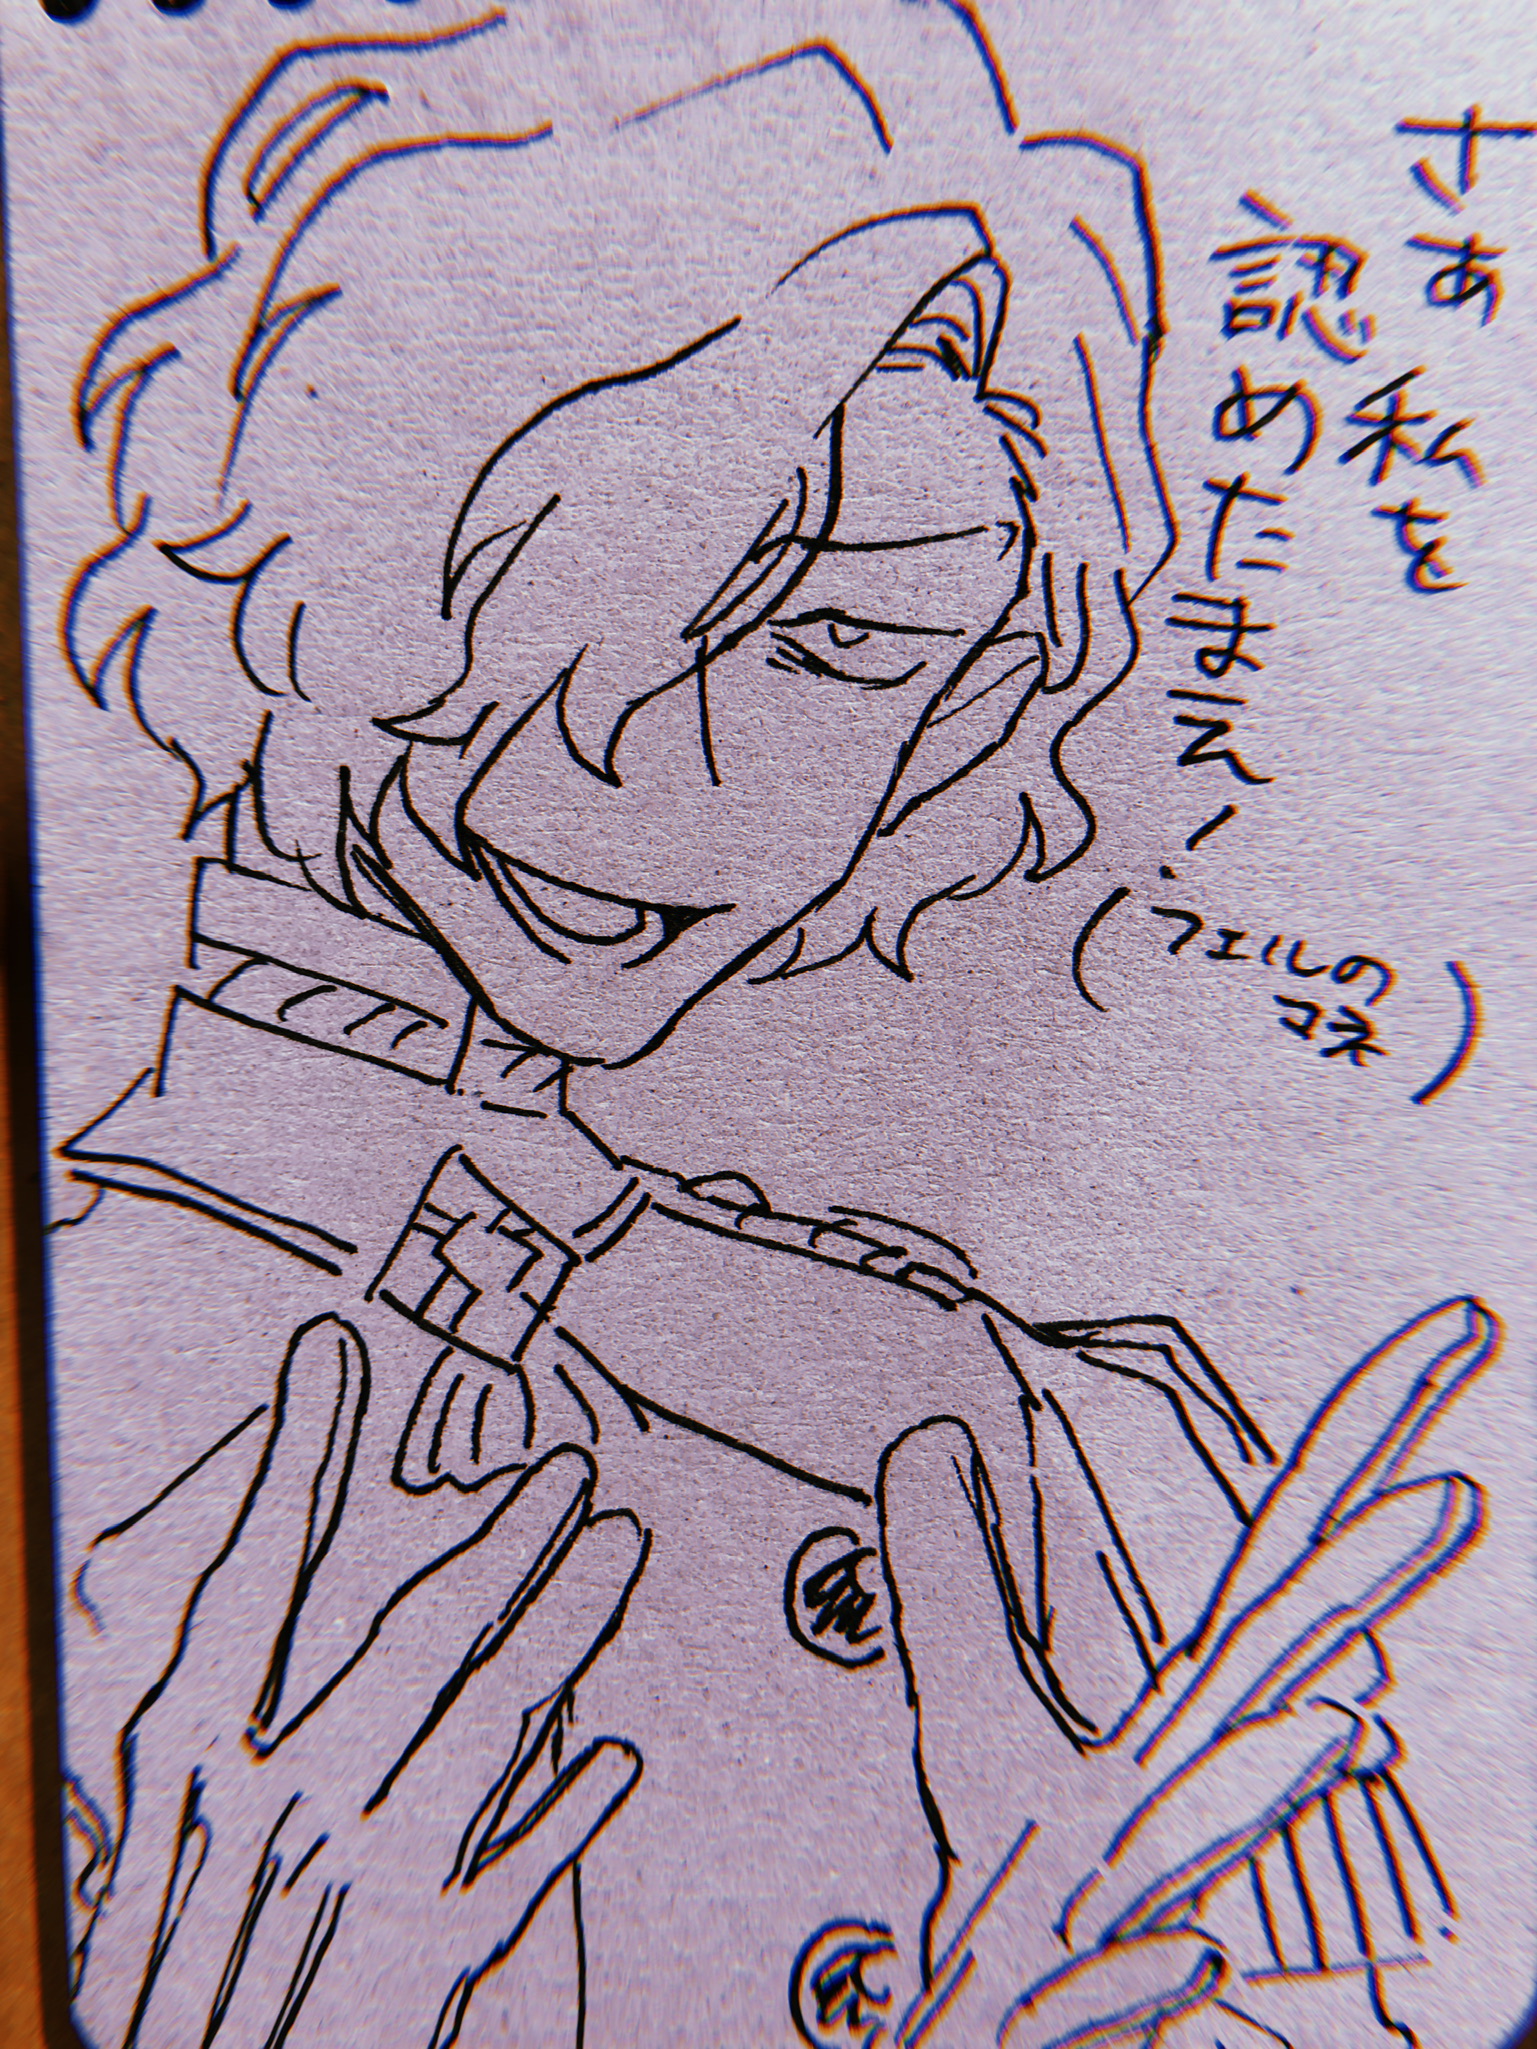 さあ
私を
認めたまえ!
(フェルの
コネ)